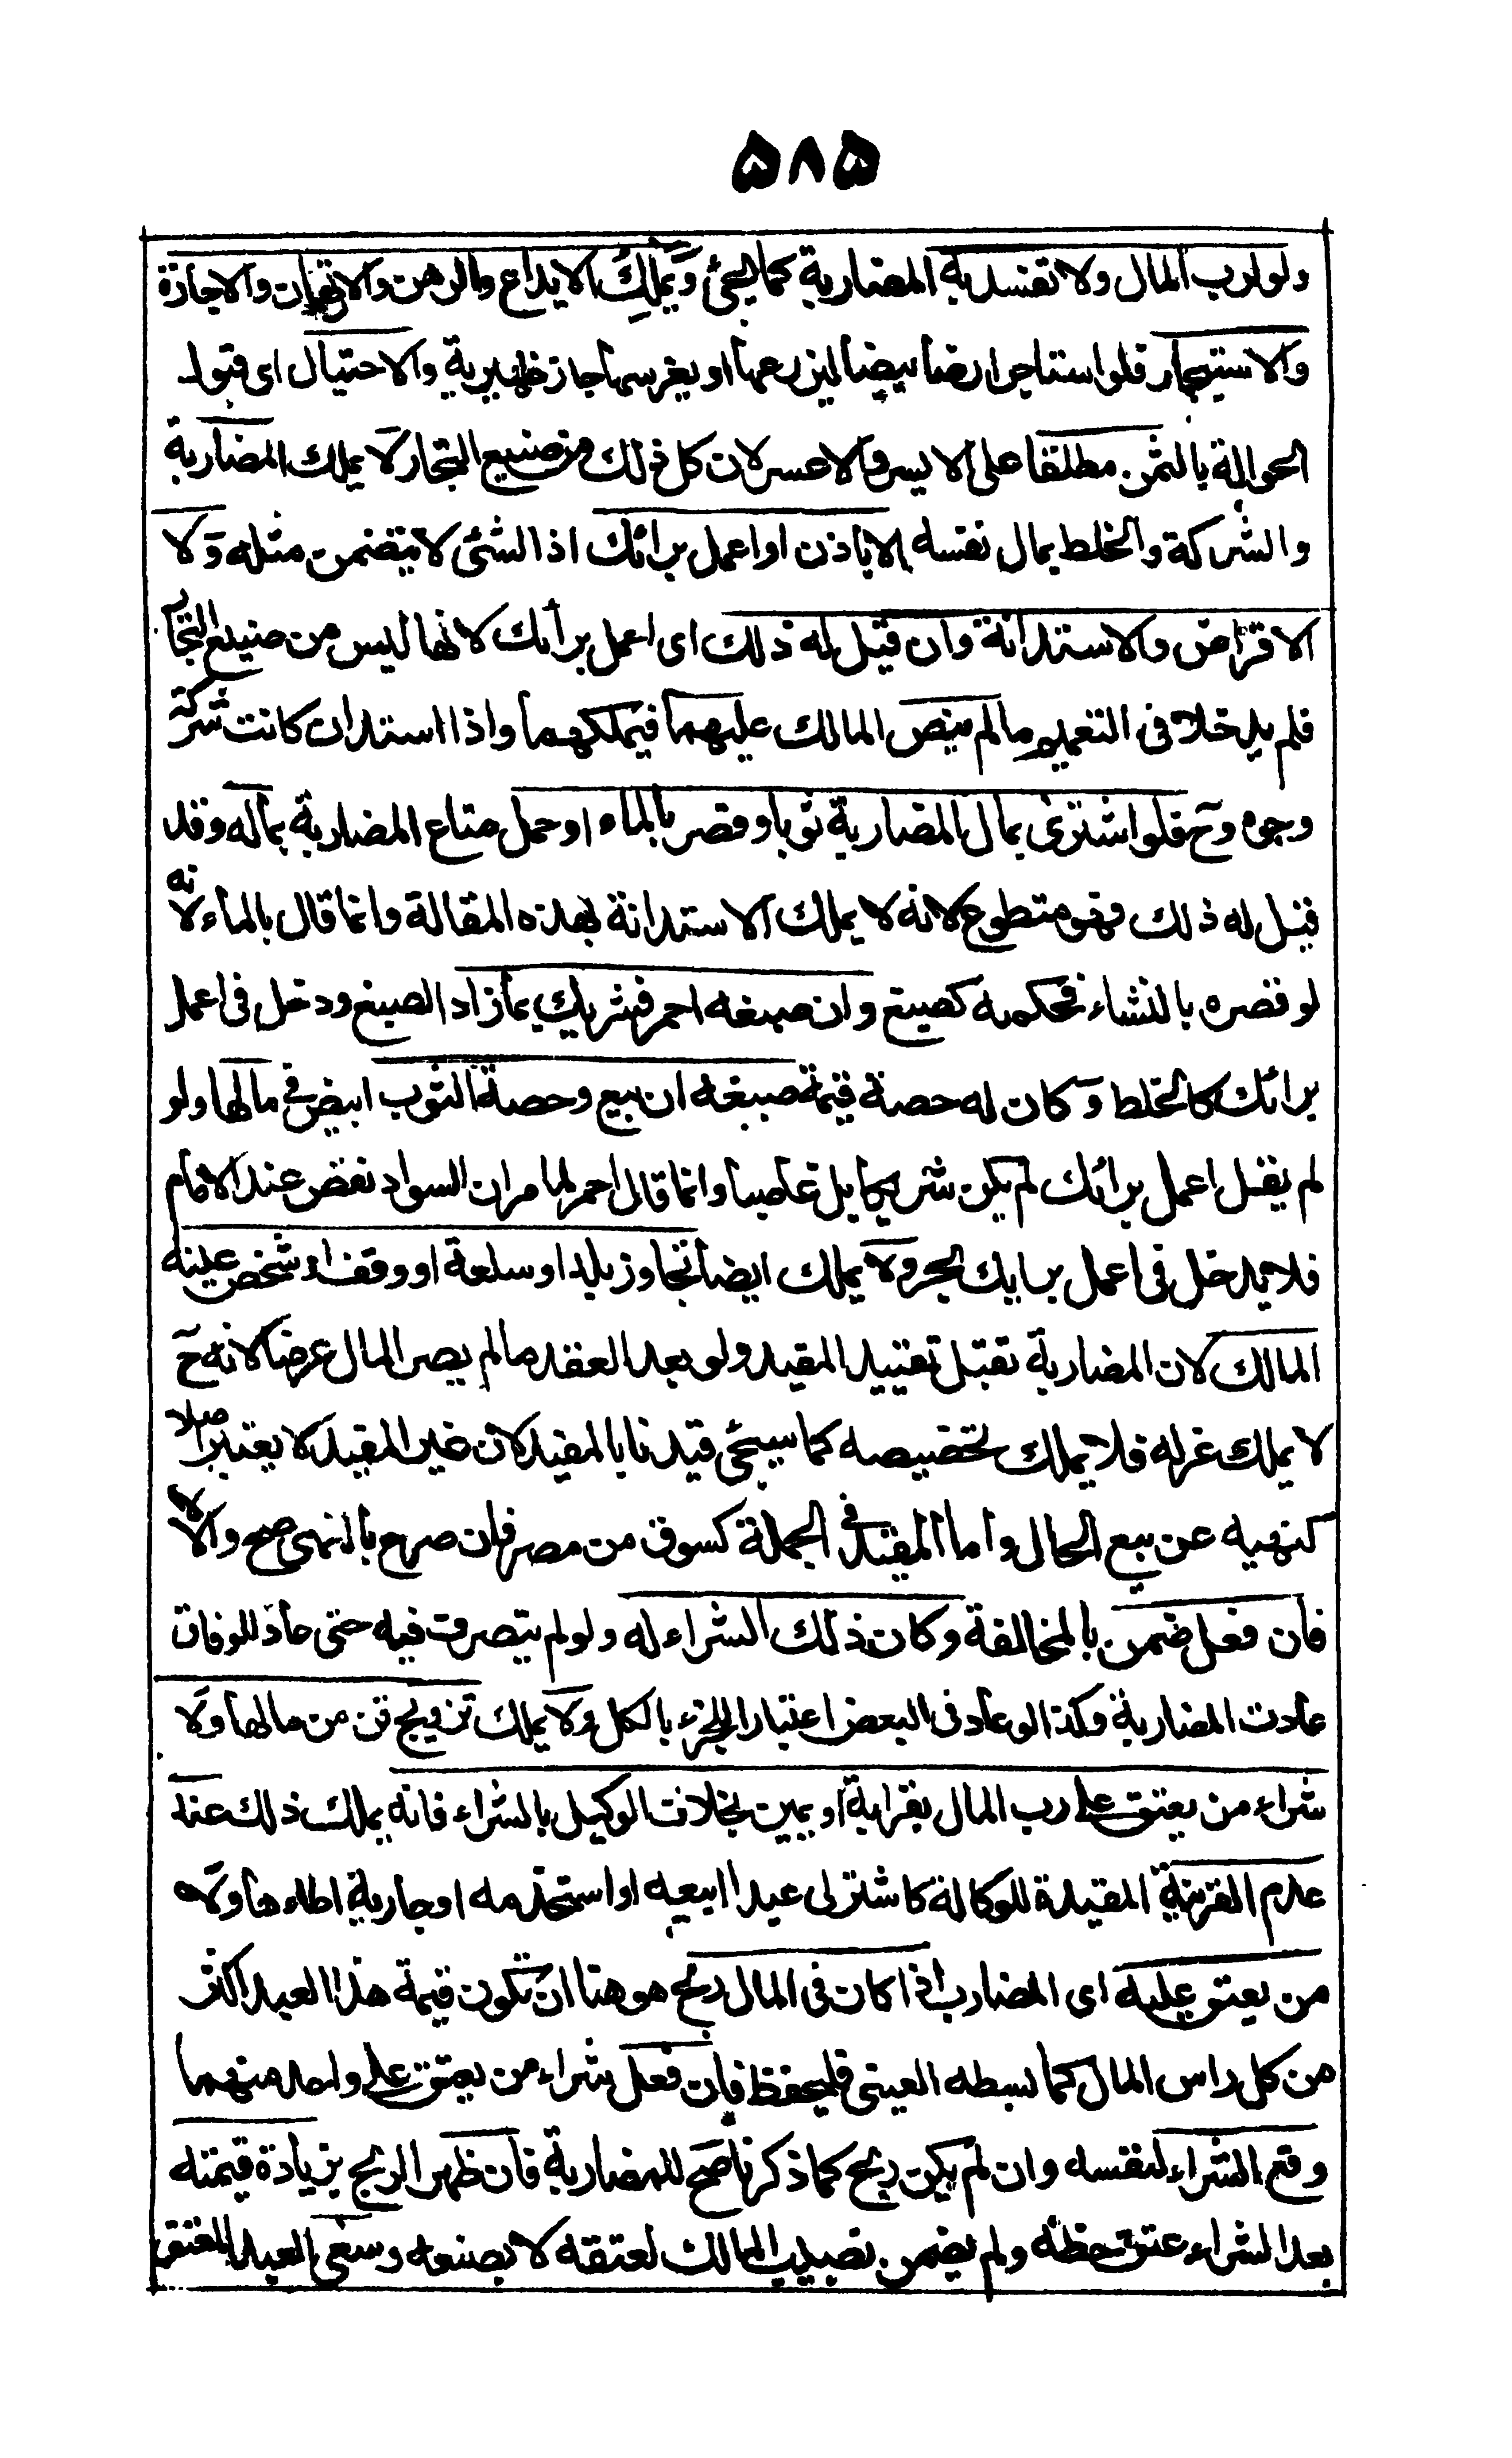 ۵۸۵
ولو لرب المال ولا تفسد به المضاربة كما يجئ ويملك الايداع والرهن والارتهان والاجارة
والاستيجار فلو استاجر ارضا بيضا ليزرعها او يغرسها جاز ظهيرية والاحتيال اى قبول
الحوالة بالثمن مطلقا على الايسر والاعسر لان كل ذلك من صنيع التجار لا يملك المضاربة
والشركة والخلط بمال نفسه الا باذن او اعمل برائك اذ الشئ لا يتضمن مثله ولا
الاقراض والاستدانة وان قيل له ذلك اى اعمل برأيك لانها ليس من صنيع التجار
فلم يدخلا فى التعميم ما لم ينص المالك عليهما فيملكهما واذا استدان كانت شركة
وجوه وح فلو اشترى بمال المضاربة ثوبا وقصر بالماء او حمل متاع المضاربة بماله وقد
قيل له ذلك فهو متطوع لانه لا يملك الاستدانة بهذه المقالة وانما قال بالماء لانه
لو قصره بالنشاء فحكمه كصبغ وان صبغه احمر فشريك بما زاد الصبغ ودخل فى اعمل
برائك كالخلط وكان له حصة قيمة صبغه ان بيع وحصة الثوب ابيض فى مالها ولو
لم يقل اعمل برائك لم يكن شريكا بل غاصبا وانما قال احمر لما مر ان السواد نقص عند الامام
فلا يدخل فى اعمل برايك بحر ولا يملك ايضا تجاوز بلد او سلعة او وقت او شخص عينه
المالك لان المضاربة تقبل تقييد المقيد ولو بعد العقد ما لم يصر المال عرضا لانه ح
لا يملك عزله فلا يملك تخصيصه كما سيجئ قيدنا بالمفيد لان غير المقيد لا يعتبر اصلا
كنهيه عن بيع الحال واما المقيد فى الجملة كسوق من مصر فان صرح بالنهى صح والا لا
فان فعل ضمن بالمخالفة وكان ذلك الشراء له ولو لم يتصرف فيه حتى عاد للوفاق
عادت المضاربة وكذا لو عاد فى البعض اعتبارا للجزء بالكل ولا يملك تزويج قن من مالها ولا
شراء من يعتق على رب المال بقرابة او يمين بخلاف الوكيل بالشراء فانه يملك ذلك عند
عدم القرينة المقيدة للوكالة كاشتر لى عبدا ابيعه او استخدمه او جارية اطاءها ولا
من يعتق عليه اى المضارب اذا كان فى المال ربح هو هنا ان تكون قيمة هذا العبد اكثر
من كل راس المال كما بسطه العينى فليحفظ فان فعل شراء من يعتق على واحد منهما
وقع الشراء لنفسه وان لم يكن ربح كما ذكرنا صح للمضاربة فان ظهر الربح بزيادة قيمته
بعد الشراء عتق حظه ولم يضمن نصيب المالك لعتقه لا بصنعه وسعى العبد المعتق